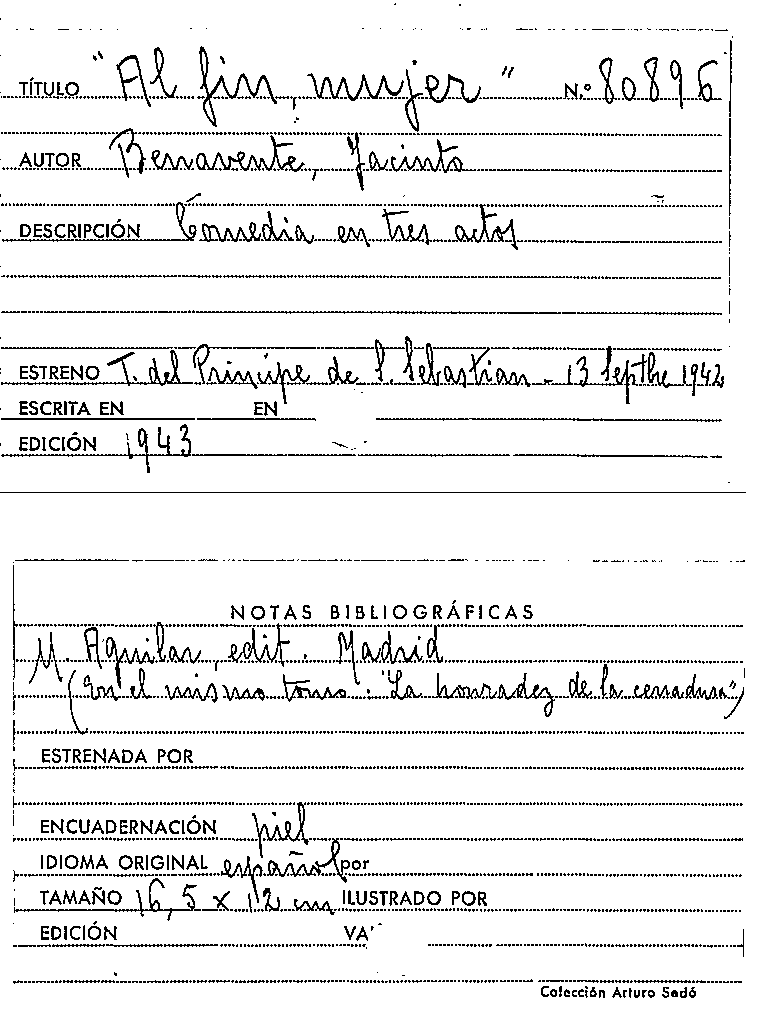 TÍTULO "Al fin, mujer" N.º 80896
AUTOR Benavente, Jacinto
DESCRIPCIÓN Comedia en tres actos
ESTRENO T. del Príncipe de S. Sebastian - 13 Septbre 1942
ESCRITA EN EN
EDICIÓN 1943
NOTAS BIBLIOGRÁFICAS
M. Aguilar, edit. Madrid
(En el mismo tomo: "La honradez de la cerradura")
ESTRENADA POR
ENCUADERNACIÓN piel
IDIOMA ORIGINAL español por
TAMAÑO 16,5 x 12 cm ILUSTRADO POR
EDICIÓN VA
Colección Arturo Sedó